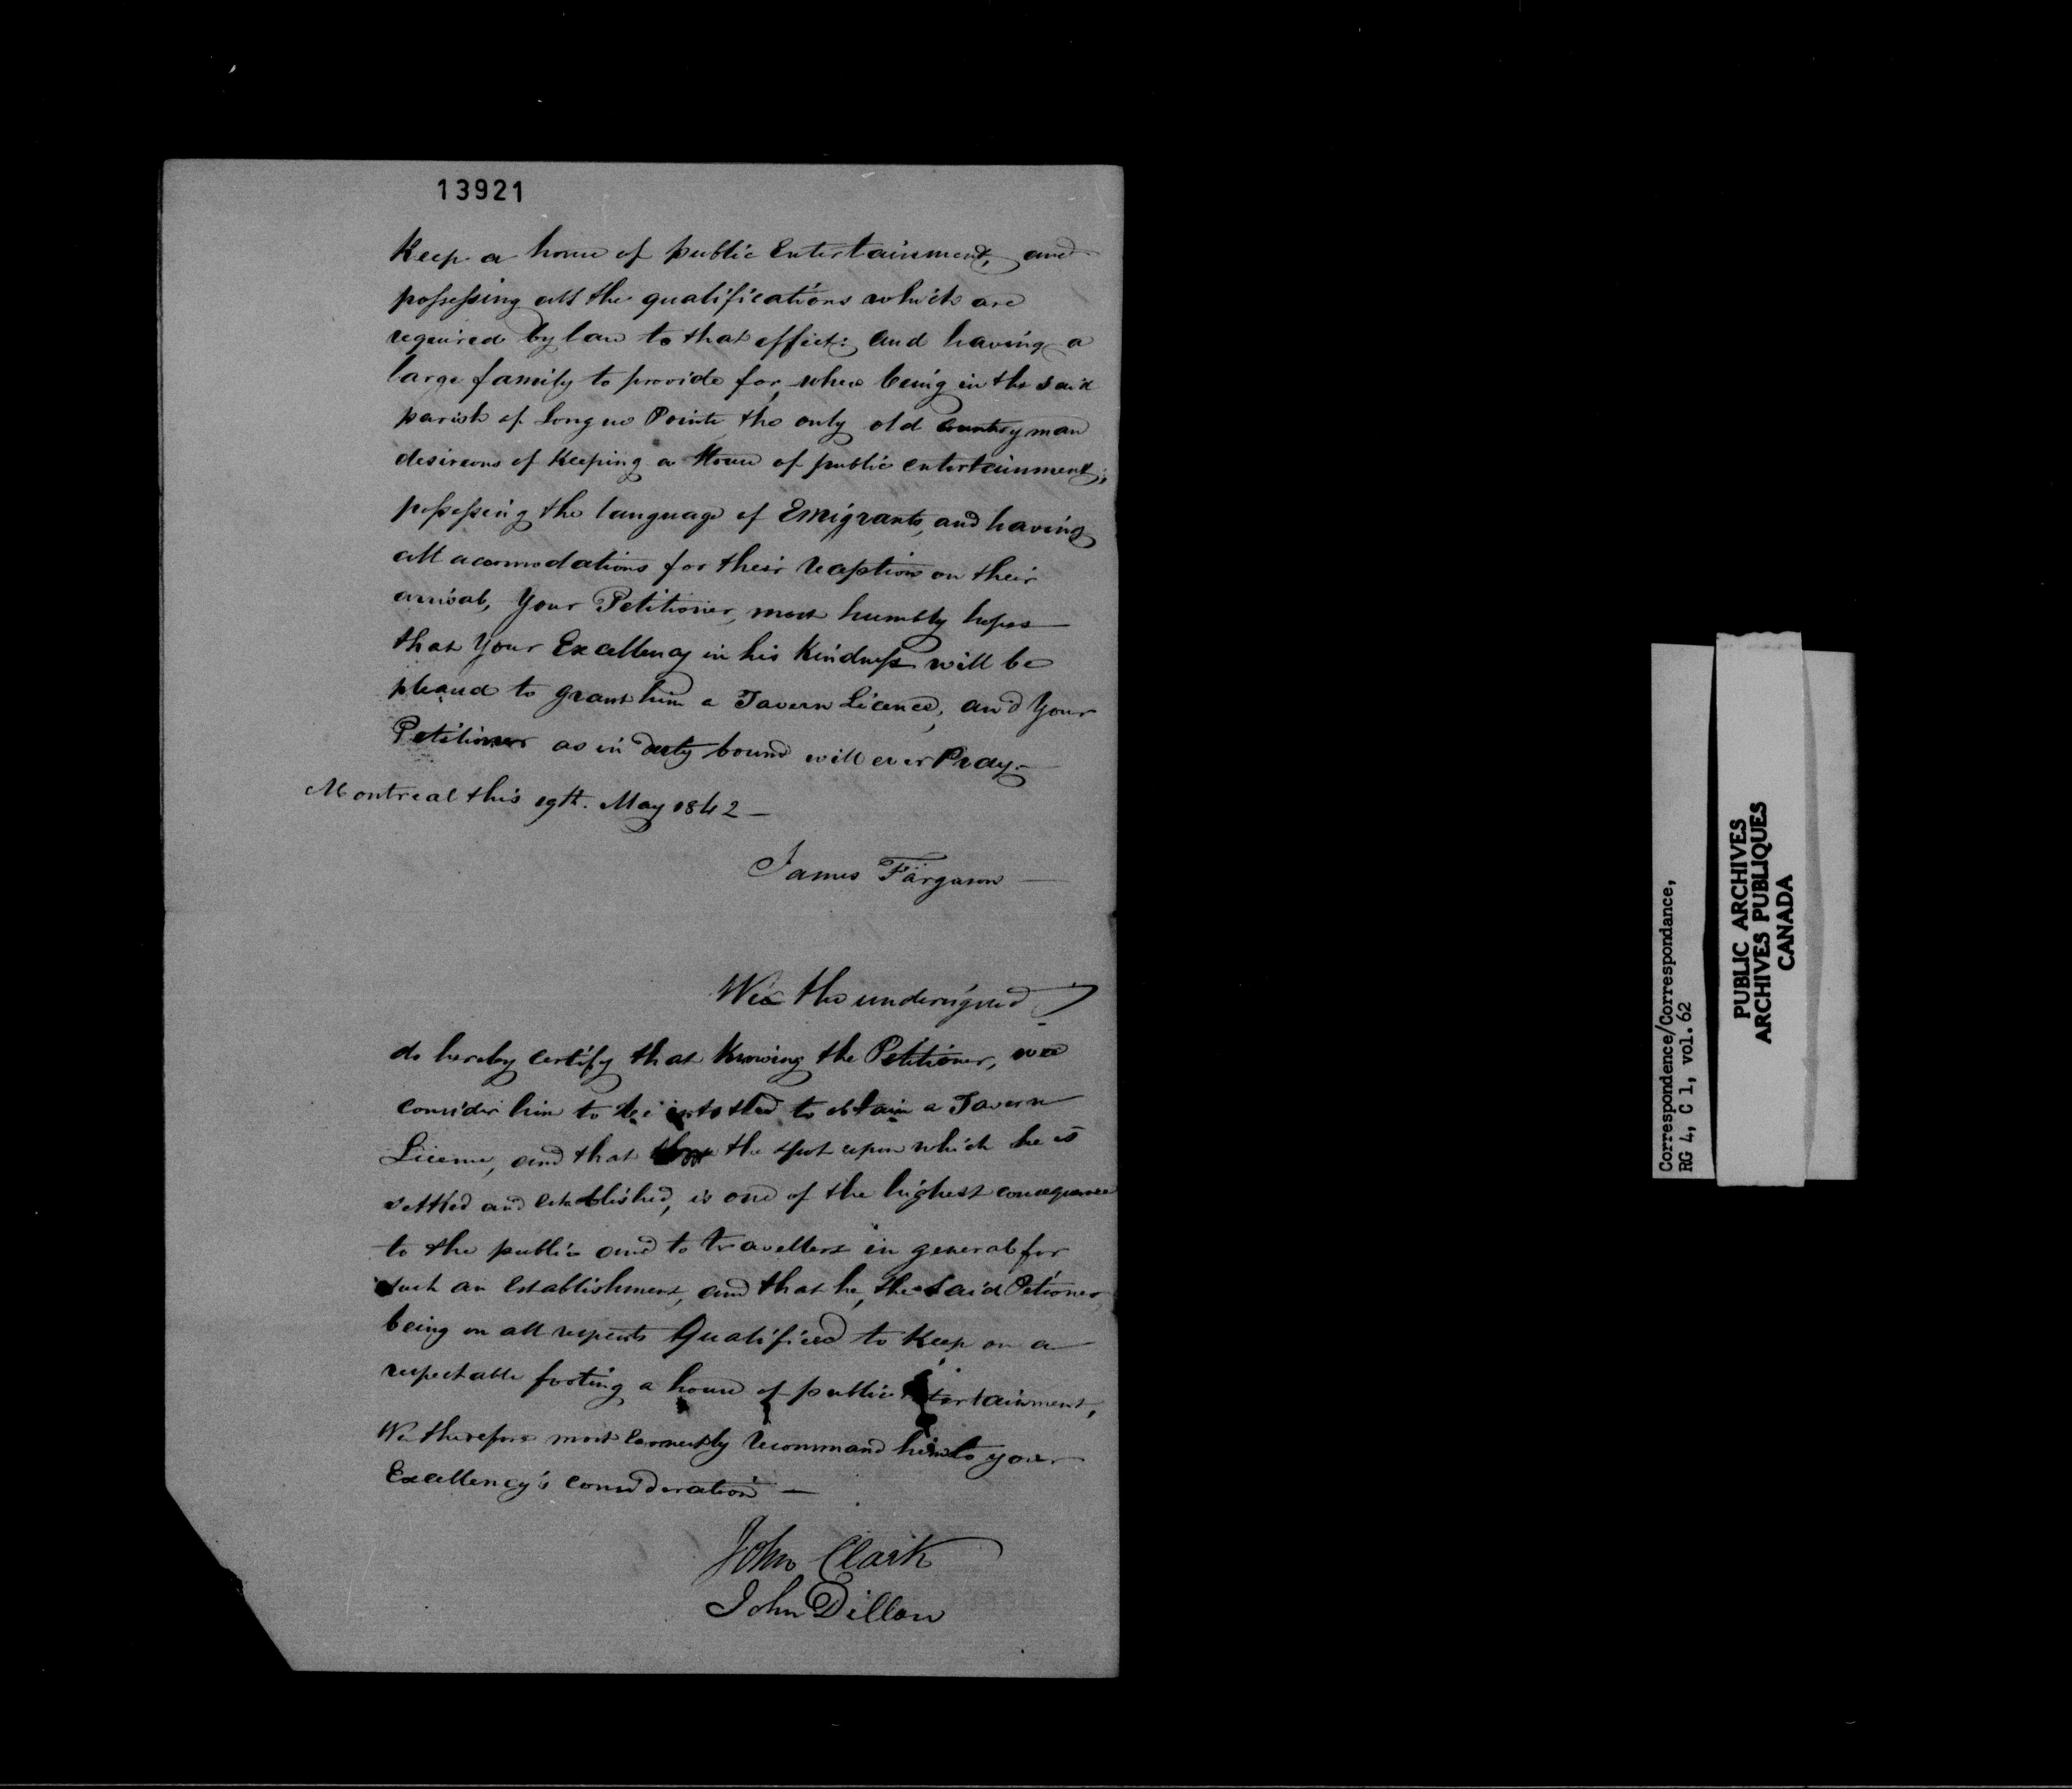 13921
Keep a house of public Entertainment, and
possessing all the qualifications which are
required by law to that effect: and having a
large family to provide for, who being in the said
parish of Longue Pointe the only old Countryman
desireous of Keeping a House of public entertainment;
possessing the language of Emigrants, and having
all acomodations for their reception on their
arrival, Your Petitioner, most humbly hopes
that Your Excellency in his Kindness will be
pleased to grant him a Tavern Licence, and Your
Petitioner as in duty bound will ever Pray.
Montreal this 19th. May 1842
James Farguson
Wee the undersigned
do hereby certify that Knowing the Petitioner, wee
consider him to be to obtain a Tavern
License, and that the spot upon which he is
settled and established, is one of the highest consequence
to the public and to travellers in general for
such an establishment, and that he, the said Petioner
being in all respects Qualified to Keep on a
respectable footing a house of public entertainment,
We therefore most earnestly recommand him to your
Excellency's consideration
John Clark
John Dillon
Correspondence/Correspondance,
RG 4, C 1, vol. 62
PUBLIC ARCHIVES
ARCHIVES PUBLIQUES
CANADA